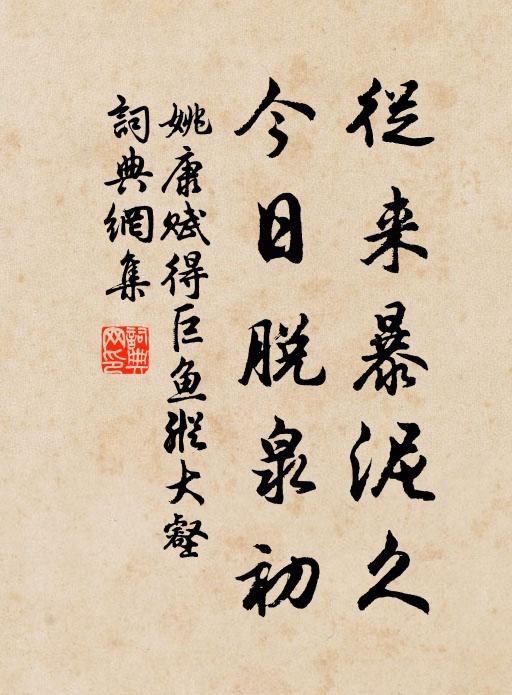 從来暴泥久
今日脱泉初
姚康賦得巨魚縱大壑
詞典網集
詞典網印